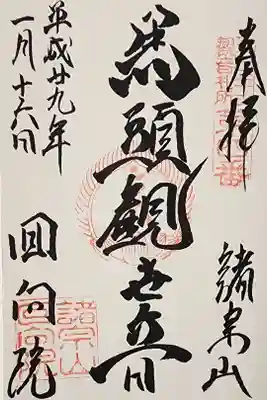 奉拝
諸宗山
馬頭觀世音
平成廿九年
一月十六日
回向院
諸宗山
回向院